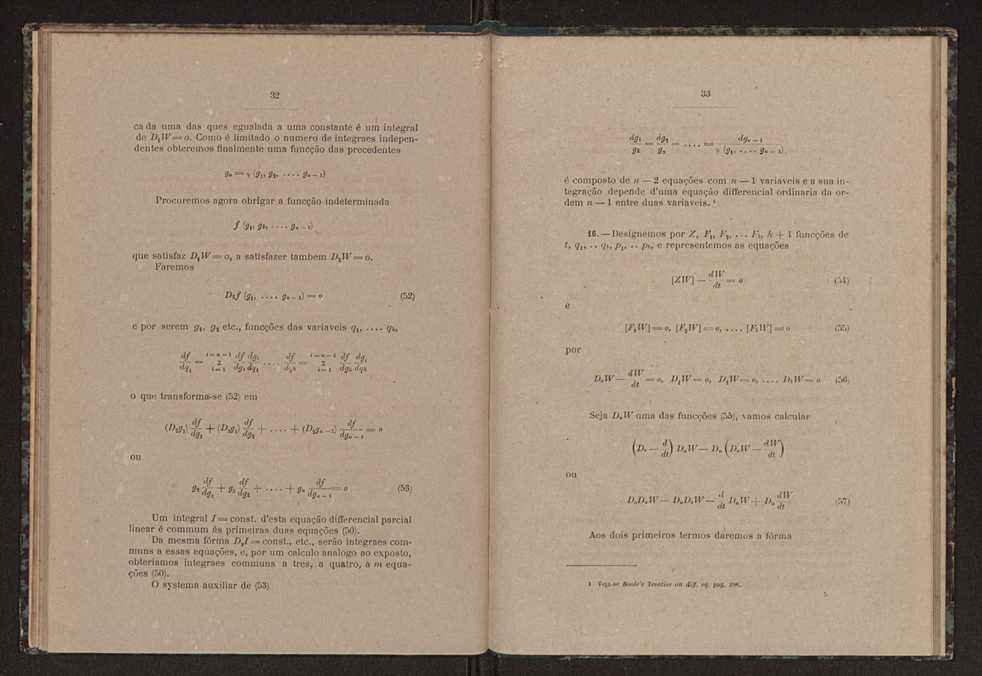 32
cada uma das ques egualada a uma constante é um integral
de D₁W = o. Como é limitado o numero de integraes indepen-
dentes obteremos finalmente uma funcção das precedentes
gₙ = γ (g₁, g₂, .... gₙ₋₁)
Procuremos agora obrigar a funcção indeterminada
f (g₁, g₂, .... gₙ₋₁)
que satisfaz D₁W = o, a satisfazer tambem D₂W = o.
Faremos
D₂f (g₁, .... gₙ₋₁) = o (52)
e por serem g₁, g₂ etc., funcções das variaveis q₁, .... qₖ,
df/dq₁ = Σ (i=1, i=n-1) df/dgᵢ dgᵢ/dq₁ .... df/dqₖ = Σ (i=1, i=n-1) df/dgᵢ dgᵢ/dqₖ
o que transforma-se (52) em
(D₂g₁) df/dg₁ + (D₂g₂) df/dg₂ + .... + (D₂gₙ₋₁) df/dgₙ₋₁ = o
ou
g₂ df/dg₁ + g₃ df/dg₂ + .... + gₙ df/dgₙ₋₁ = o (53)
Um integral I = const. d'esta equação differencial parcial
linear é commum ás primeiras duas equações (50).
Da mesma fórma D₃I = const., etc., serão integraes com-
muns a essas equações, e, por um calculo analogo ao exposto,
obteriamos integraes communs a tres, a quatro, a m equa-
ções (50).
O systema auxiliar de (53)
33
dg₁/g₂ = dg₂/g₃ = .... = dgₙ₋₁/γ (g₁, .... gₙ₋₁)
é composto de n — 2 equações com n — 1 variaveis e a sua in-
tegração depende d'uma equação differencial ordinaria da or-
dem n — 1 entre duas variaveis. ¹
16. — Designemos por Z, F₁, F₂, ... Fₖ, k + 1 funcções de
t, q₁, .. qₖ, p₁, .. pₖ, e representemos as equações
[ZW] — dW/dt = o (54)
e
[F₁W] = o, [F₂W] = o, .... [FₖW] = o (55)
por
DₒW — dW/dt = o, D₁W = o, D₂W = o, .... DₖW = o (56)
Seja DₙW uma das funcções (55), vamos calcular
(Dₒ — d/dt) DₙW — Dₙ (DₒW — dW/dt)
ou
DₒDₙW — DₙDₒW — d/dt DₙW + Dₙ dW/dt (57)
Aos dois primeiros termos daremos a fórma
1 Veja-se Boole's Treatise on diff. eq. pag.